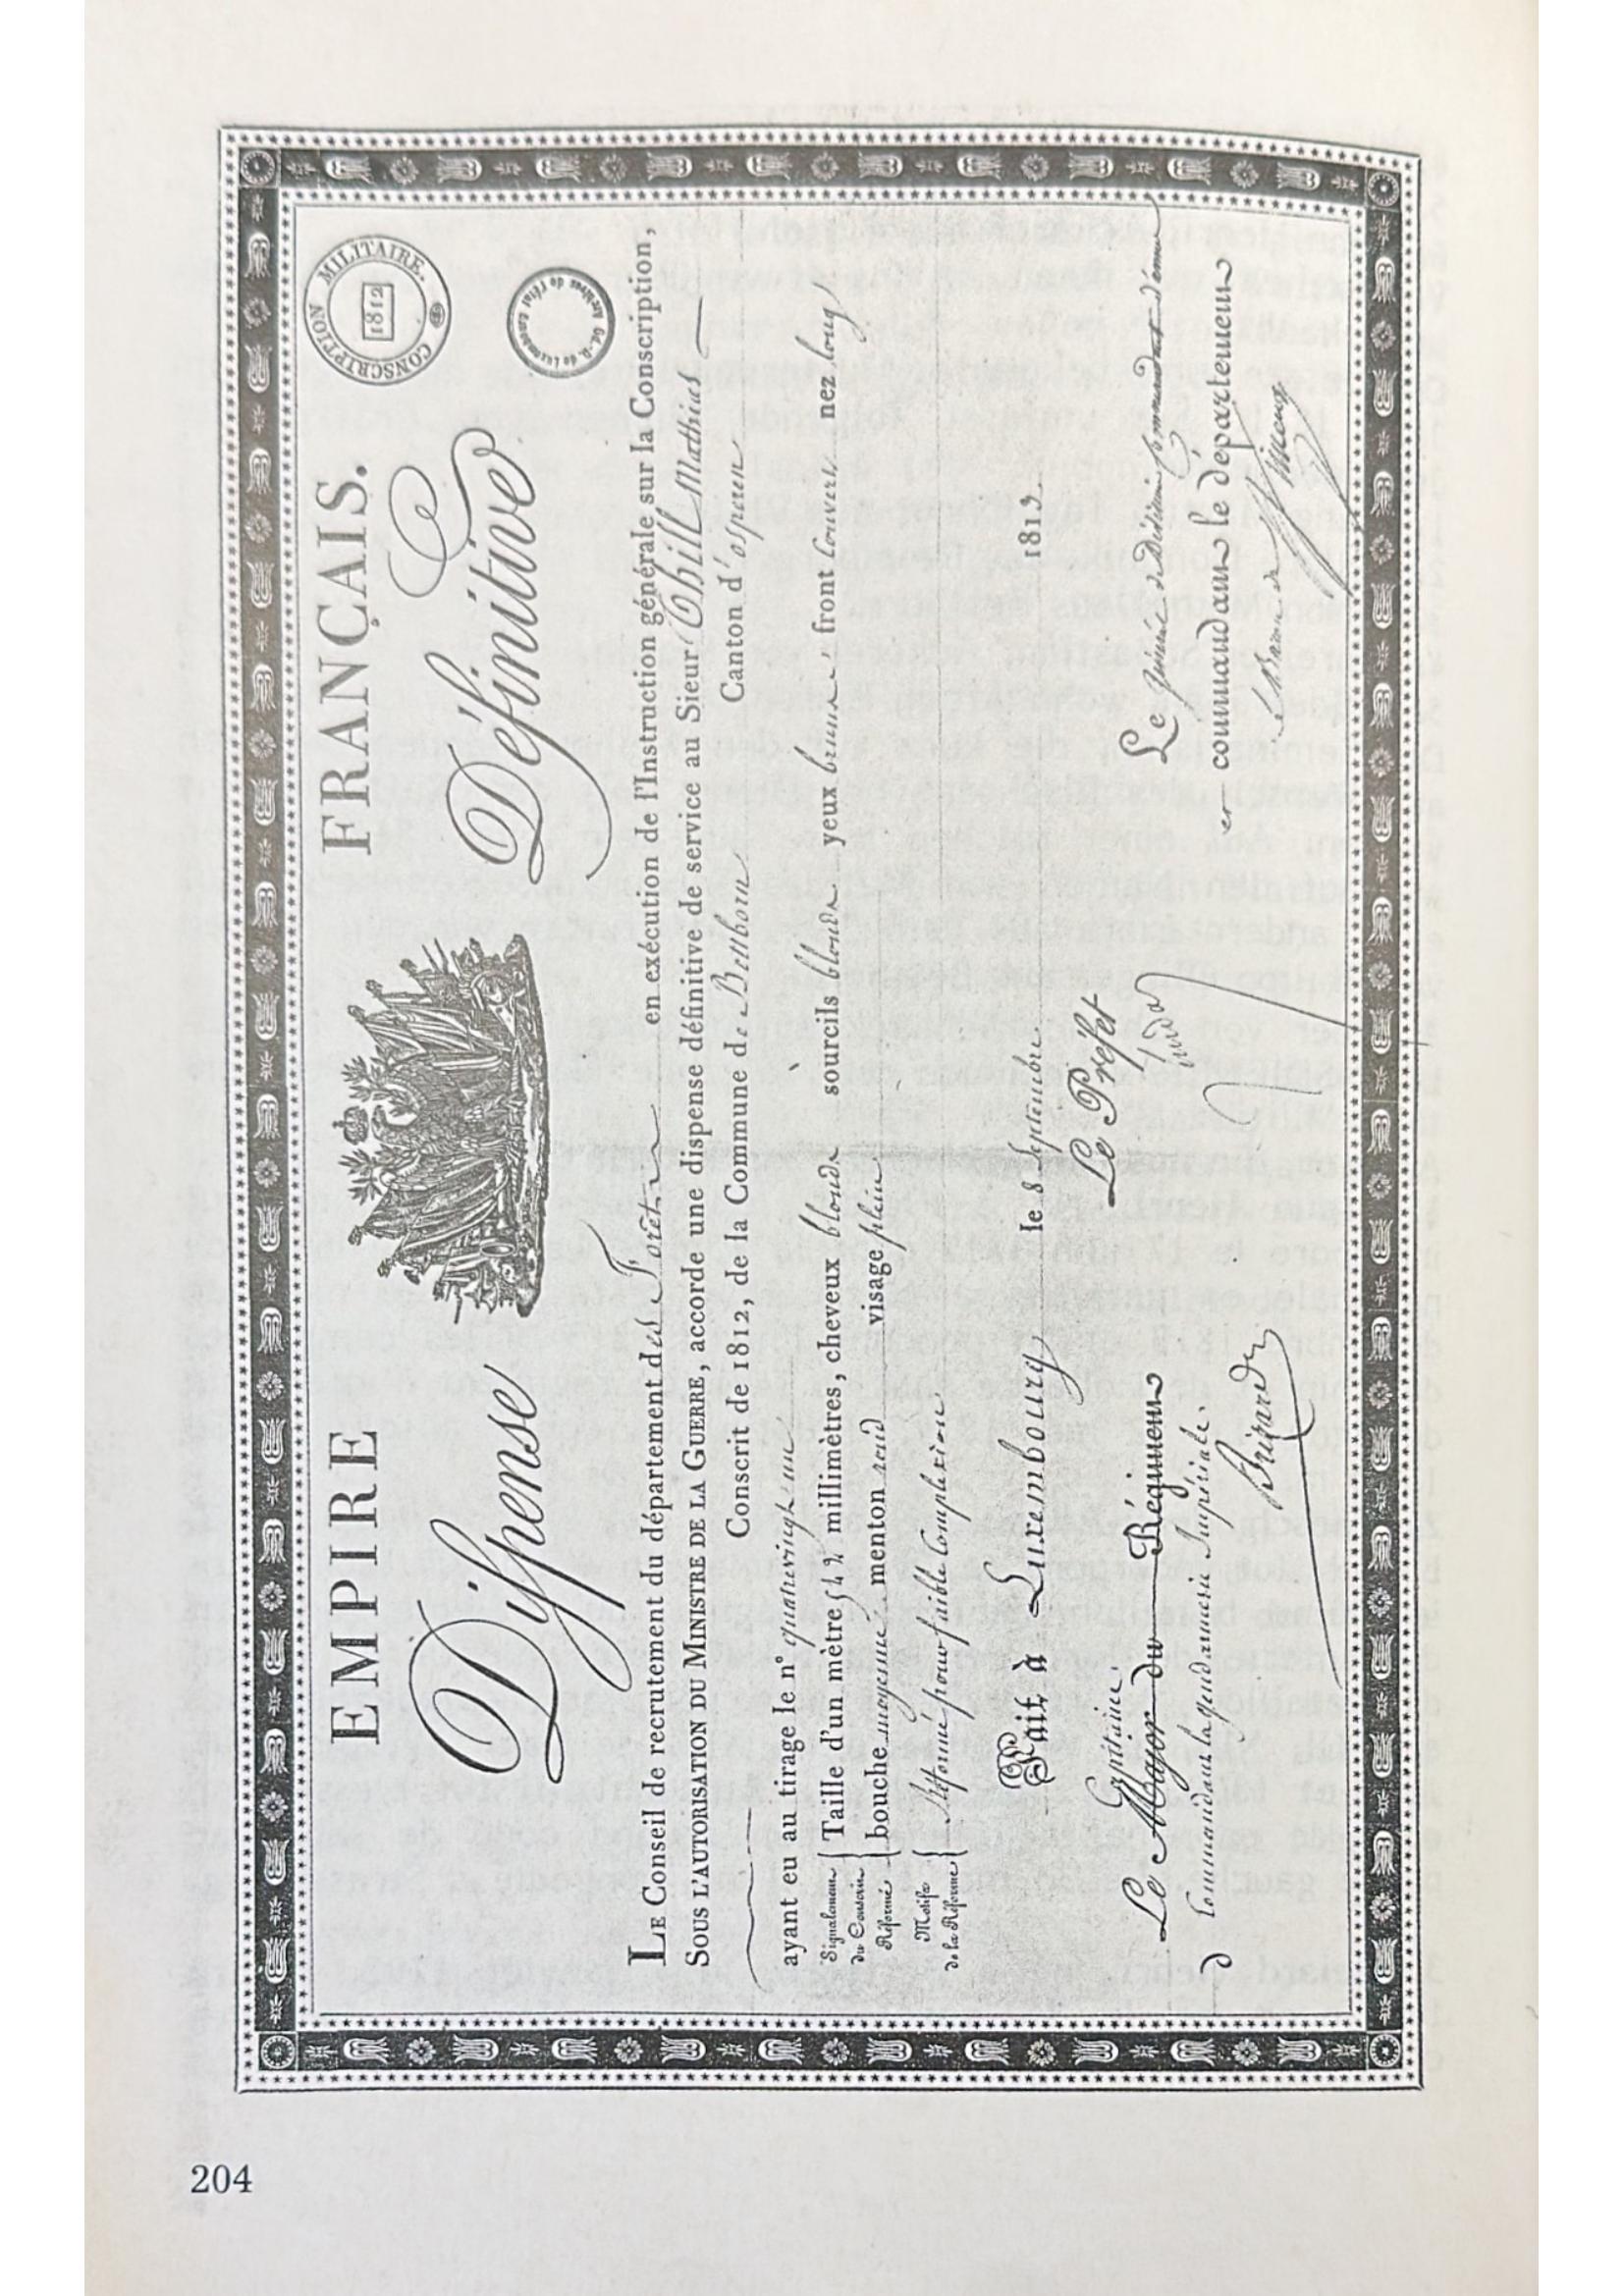 EMPIRE FRANÇAIS.
CONSCRIPTION MILITAIRE.
1812
Dispense Définitive
Archives de l'état Gd.-D. de Luxembourg
LE Conseil de recrutement du département des Forêts en exécution de l'Instruction générale sur la Conscription,
SOUS L'AUTORISATION DU MINISTRE DE LA GUERRE, accorde une dispense définitive de service au Sieur Thill Mathias
Conscrit de 1812, de la Commune de Bettborn Canton d'ospern
ayant eu au tirage le n° quatrevingt un
Signalement du Conscrit Réformé
Taille d'un mètre 542 millimètres, cheveux blonds sourcils blonds yeux bruns front couvert nez long
bouche moyenne menton rond visage plein
Motifs de la Réforme
Réformé pour faible complexion
Fait à Luxembourg le 8 Septembre 1813
Capitaine
Le Major du Régiment
Commandant la gendarmerie Impériale.
Le Préfet
Le Général de Division commandant
commandant le département
le Baron de
204